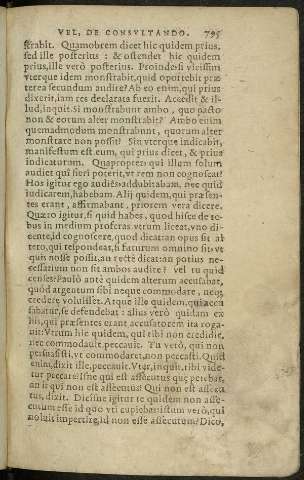 VEL, DE CONSVLTANDO. 795
strabit. Quamobrem dicet hic quidem prius,
sed ille posterius : & ostendet hic quidem
prius, ille verò posterius. Proinde si vicissim
vterque idem monstrabit, quid oportebit præ
terea secundum audire? Ab eo enim, qui prius
dixerit, iam res declarata fuerit. Accedit & il-
lud, inquit. Si monstrabunt ambo, quo pacto
non & eorum alter monstrabit? Ambo enim
quemadmodum monstrabunt, quorum alter
monstrare non possit? Sin vterque indicabit,
manifestum est eum, qui prius dicet, & prius
indicaturum. Quapropter qui illum solum
audiet quî fieri poterit, vt rem non cognoscat?
Hos igitur ego audiēs addubitabam, nec quid
iudicarem, habebam. Alij quidem, qui præsen-
tes erant, affirmabant, priorem vera dicere.
Quæro igitur, si quid habes, quod hisce de re-
bus in medium proferas vtrum liceat, vno di-
cente, id cognoscere, quod dicat: an opus sit al
tero, qui respondeat, si futurum omnino sit vt
quis nosse possit, an rectè dicat: an potius ne-
cessarium non sit ambos audire? vel tu quid
censes? Paulò antè quidem alterum accusabat,
quòd argentum sibi neque commodare, neque
credere voluisset. Atque ille quidem, qui accu
sabatur, se defendebat : alius verò quidam ex
his, qui præsentes erant accusatorem ita roga-
uit: Vtrum hic quidem, qui tibi non credidit,
nec commodauit, peccauit. Tu verò, qui non
persuasisti, vt commodaret, non peccasti. Quid
enim, dixit ille, peccaui? Vter, inquit, tibi vide-
tur peccare? Isne qui est assecutus quę petebat,
an is qui non est assecutus? Qui non est assecu
tus, dixit. Dicisne igitur te quidem non asse-
cutum esse id quo vti cupiebas: istum verò, qui
noluit impertire, id non esse assecutum? Dico,